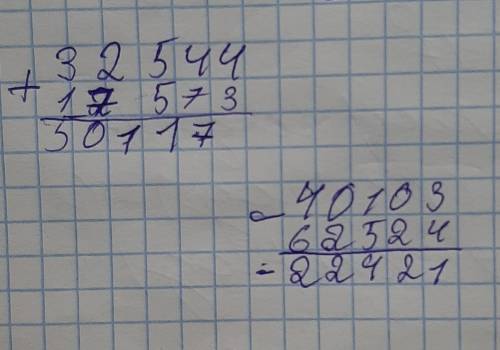 32 544
+ 17 573
50117
- 40103
62524
- 22421